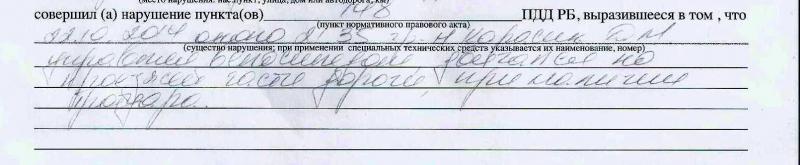 (место нарушения: нас.пункт, улица, дом или автодорога, км)
совершил (а) нарушение пункта(ов) 148 ПДД РБ, выразившееся в том , что
(пункт нормативного правового акта)
22.10.2014 около 21.35 гр-н Карасик
(существо нарушения; при применении специальных технических средств указывается их наименование, номер)
управляя велосипедом двигался по
проезжей части дороги, при наличии
тротуара.